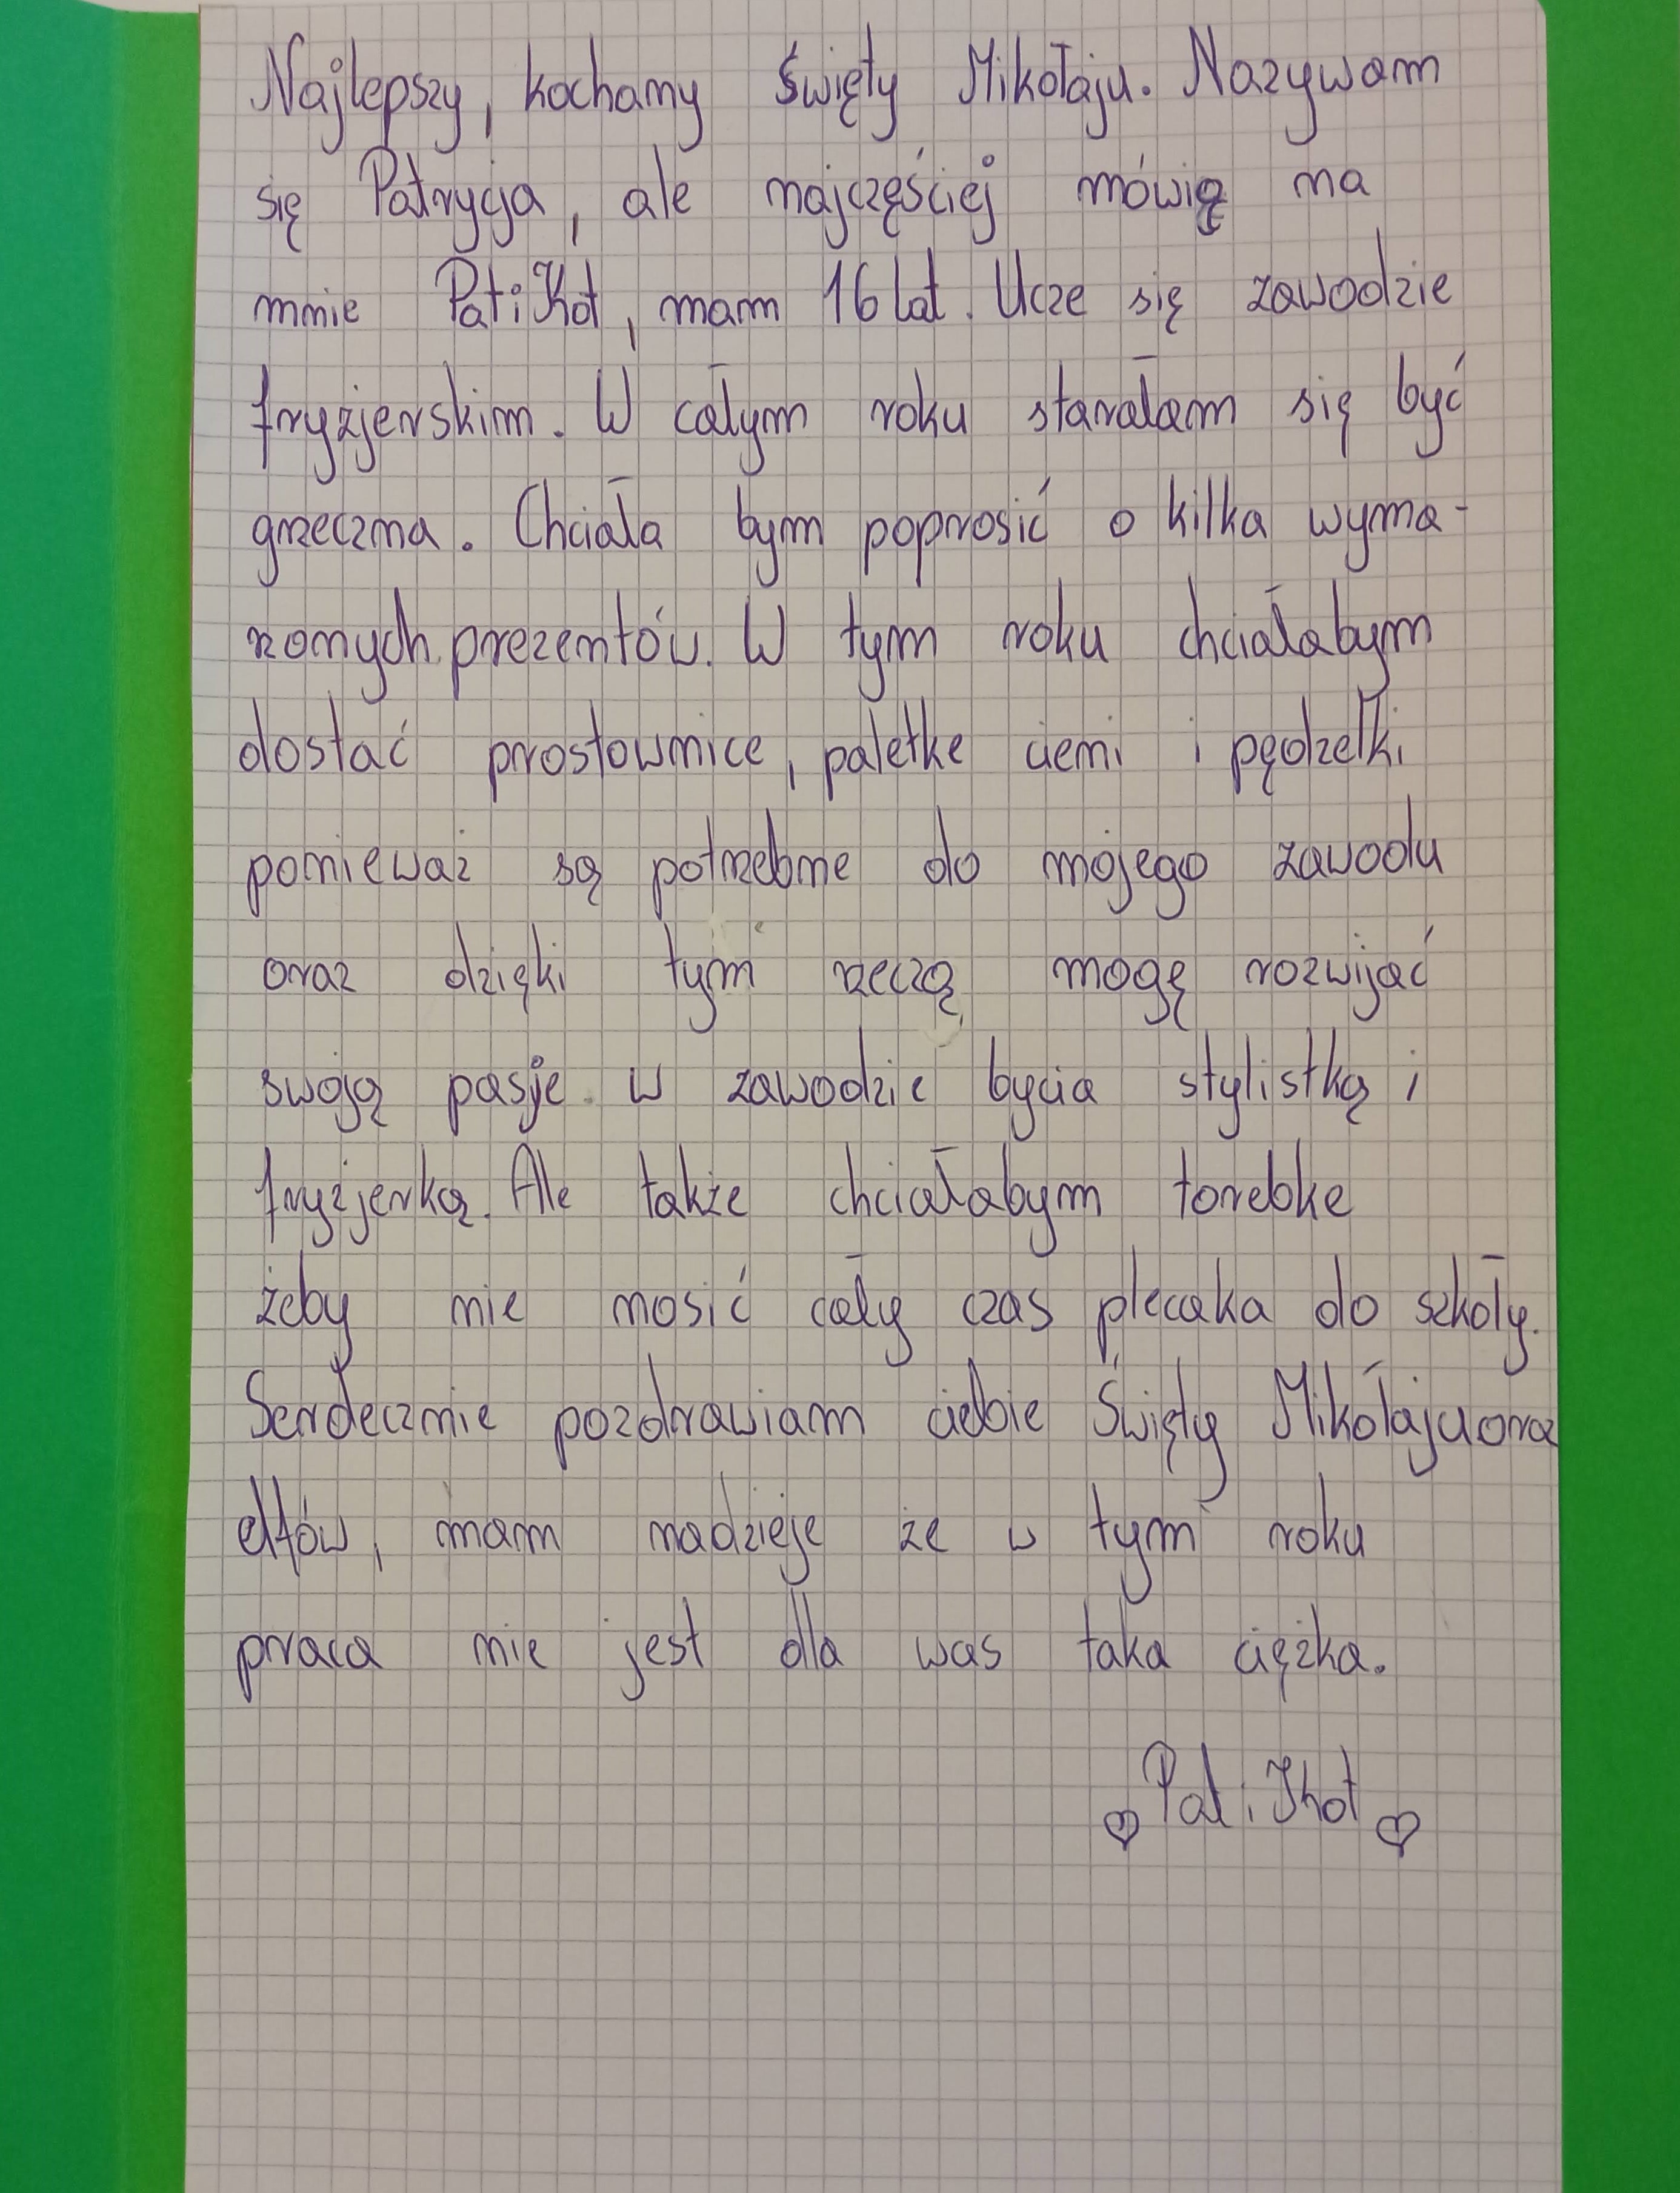 Najlepszy, kochany Święty Mikołaju. Nazywam
się Patrycja, ale najczęściej mówią na
mnie Pati Kot, mam 16 lat. Ucze się zawodzie
fryzjerskim. W całym roku starałam się być
grzeczna. Chciała bym poprosić o kilka wyma-
rzonych prezentów. W tym roku chciałabym
dostać prostownice, paletke cieni i pędzelki
ponieważ są potrzebne do mojego zawodu
oraz dzięki tym rzeczą mogę rozwijać
swoją pasje w zawodzie bycia stylistką i
fryzjerką. Ale także chciałabym torebke
żeby nie nosić cały czas plecaka do szkoły.
Serdecznie pozdrawiam ciebie Święty Mikołaju oraz
elfów, mam nadzieje że w tym roku
praca nie jest dla was taka ciężka.
♡ Pati Kot ♡